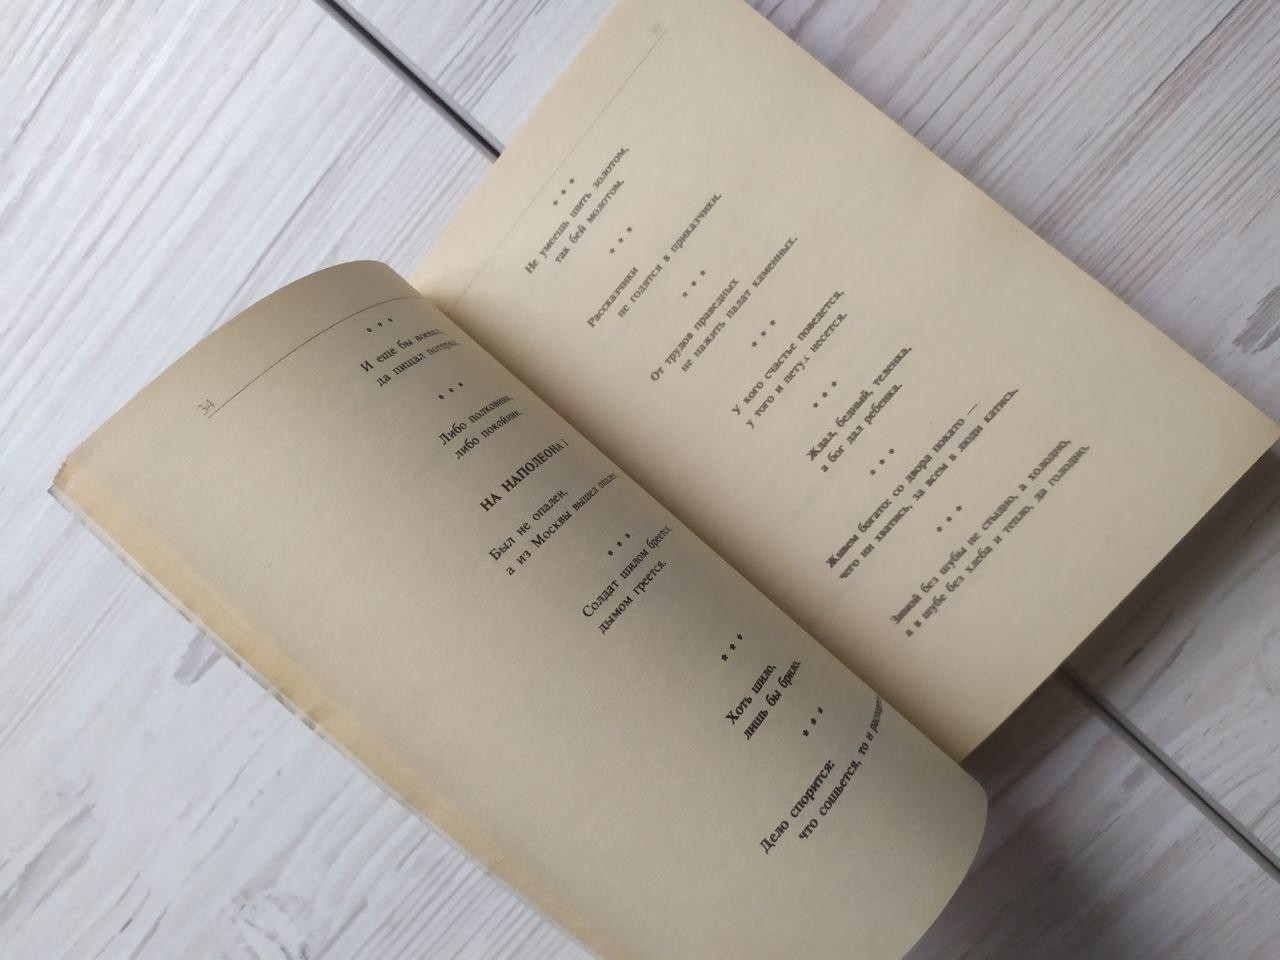 34
* * *
И еще бы воевал,
да пищал потерял.
* * *
Либо полковник,
либо покойник.
НА НАПОЛЕОНА I
Был не опален,
а из Москвы вышел опален.
* * *
Солдат шилом бреется,
дымом греется.
* * *
Хоть шило,
лишь бы брило.
* * *
Дело спорится:
что сошьется, то и
* * *
Не умеешь шить золотом,
так бей молотом.
* * *
Рассказчики
не годятся в приказчики.
* * *
От трудов праведных
не нажить палат каменных.
* * *
У кого счастье поведется,
у того и петух несется.
* * *
Ждал, бедный, теленка,
а бог дал ребенка.
* * *
Живем богато: со двора покато —
чего ни хватись, за всем в люди катись.
* * *
Зимой без шубы не стыдно, а холодно,
а в шубе без хлеба и тепло, да голодно.